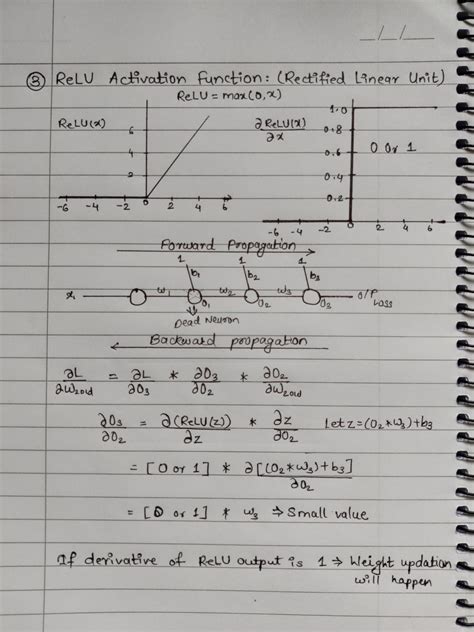 _/_/_
③ ReLU Activation Function: (Rectified Linear Unit)
ReLU = max(0, x)
ReLU(x)
6
4
2
-6 -4 -2 0 2 4 6
∂ReLU(x)
∂x
1.0
0.8
0.6
0.4
0.2
0 or 1
-6 -4 -2 0 2 4 6
Forward Propagation
1 1 1
b₁ b₂ b₃
x₁ w₁ O₁ w₂ O₂ w₃ O₃ O/P Loss
Dead Neuron
Backward propagation
∂L/∂w₂old = ∂L/∂O₃ * ∂O₃/∂O₂ * ∂O₂/∂w₂old
∂O₃/∂O₂ = ∂(ReLU(z))/∂z * ∂z/∂O₂ let z = (O₂*w₃)+b₃
= [0 or 1] * ∂[(O₂*w₃)+b₃]/∂O₂
= [0 or 1] * w₃ ⇒ Small value
If derivative of ReLU output is 1 ⇒ Weight updation
will happen